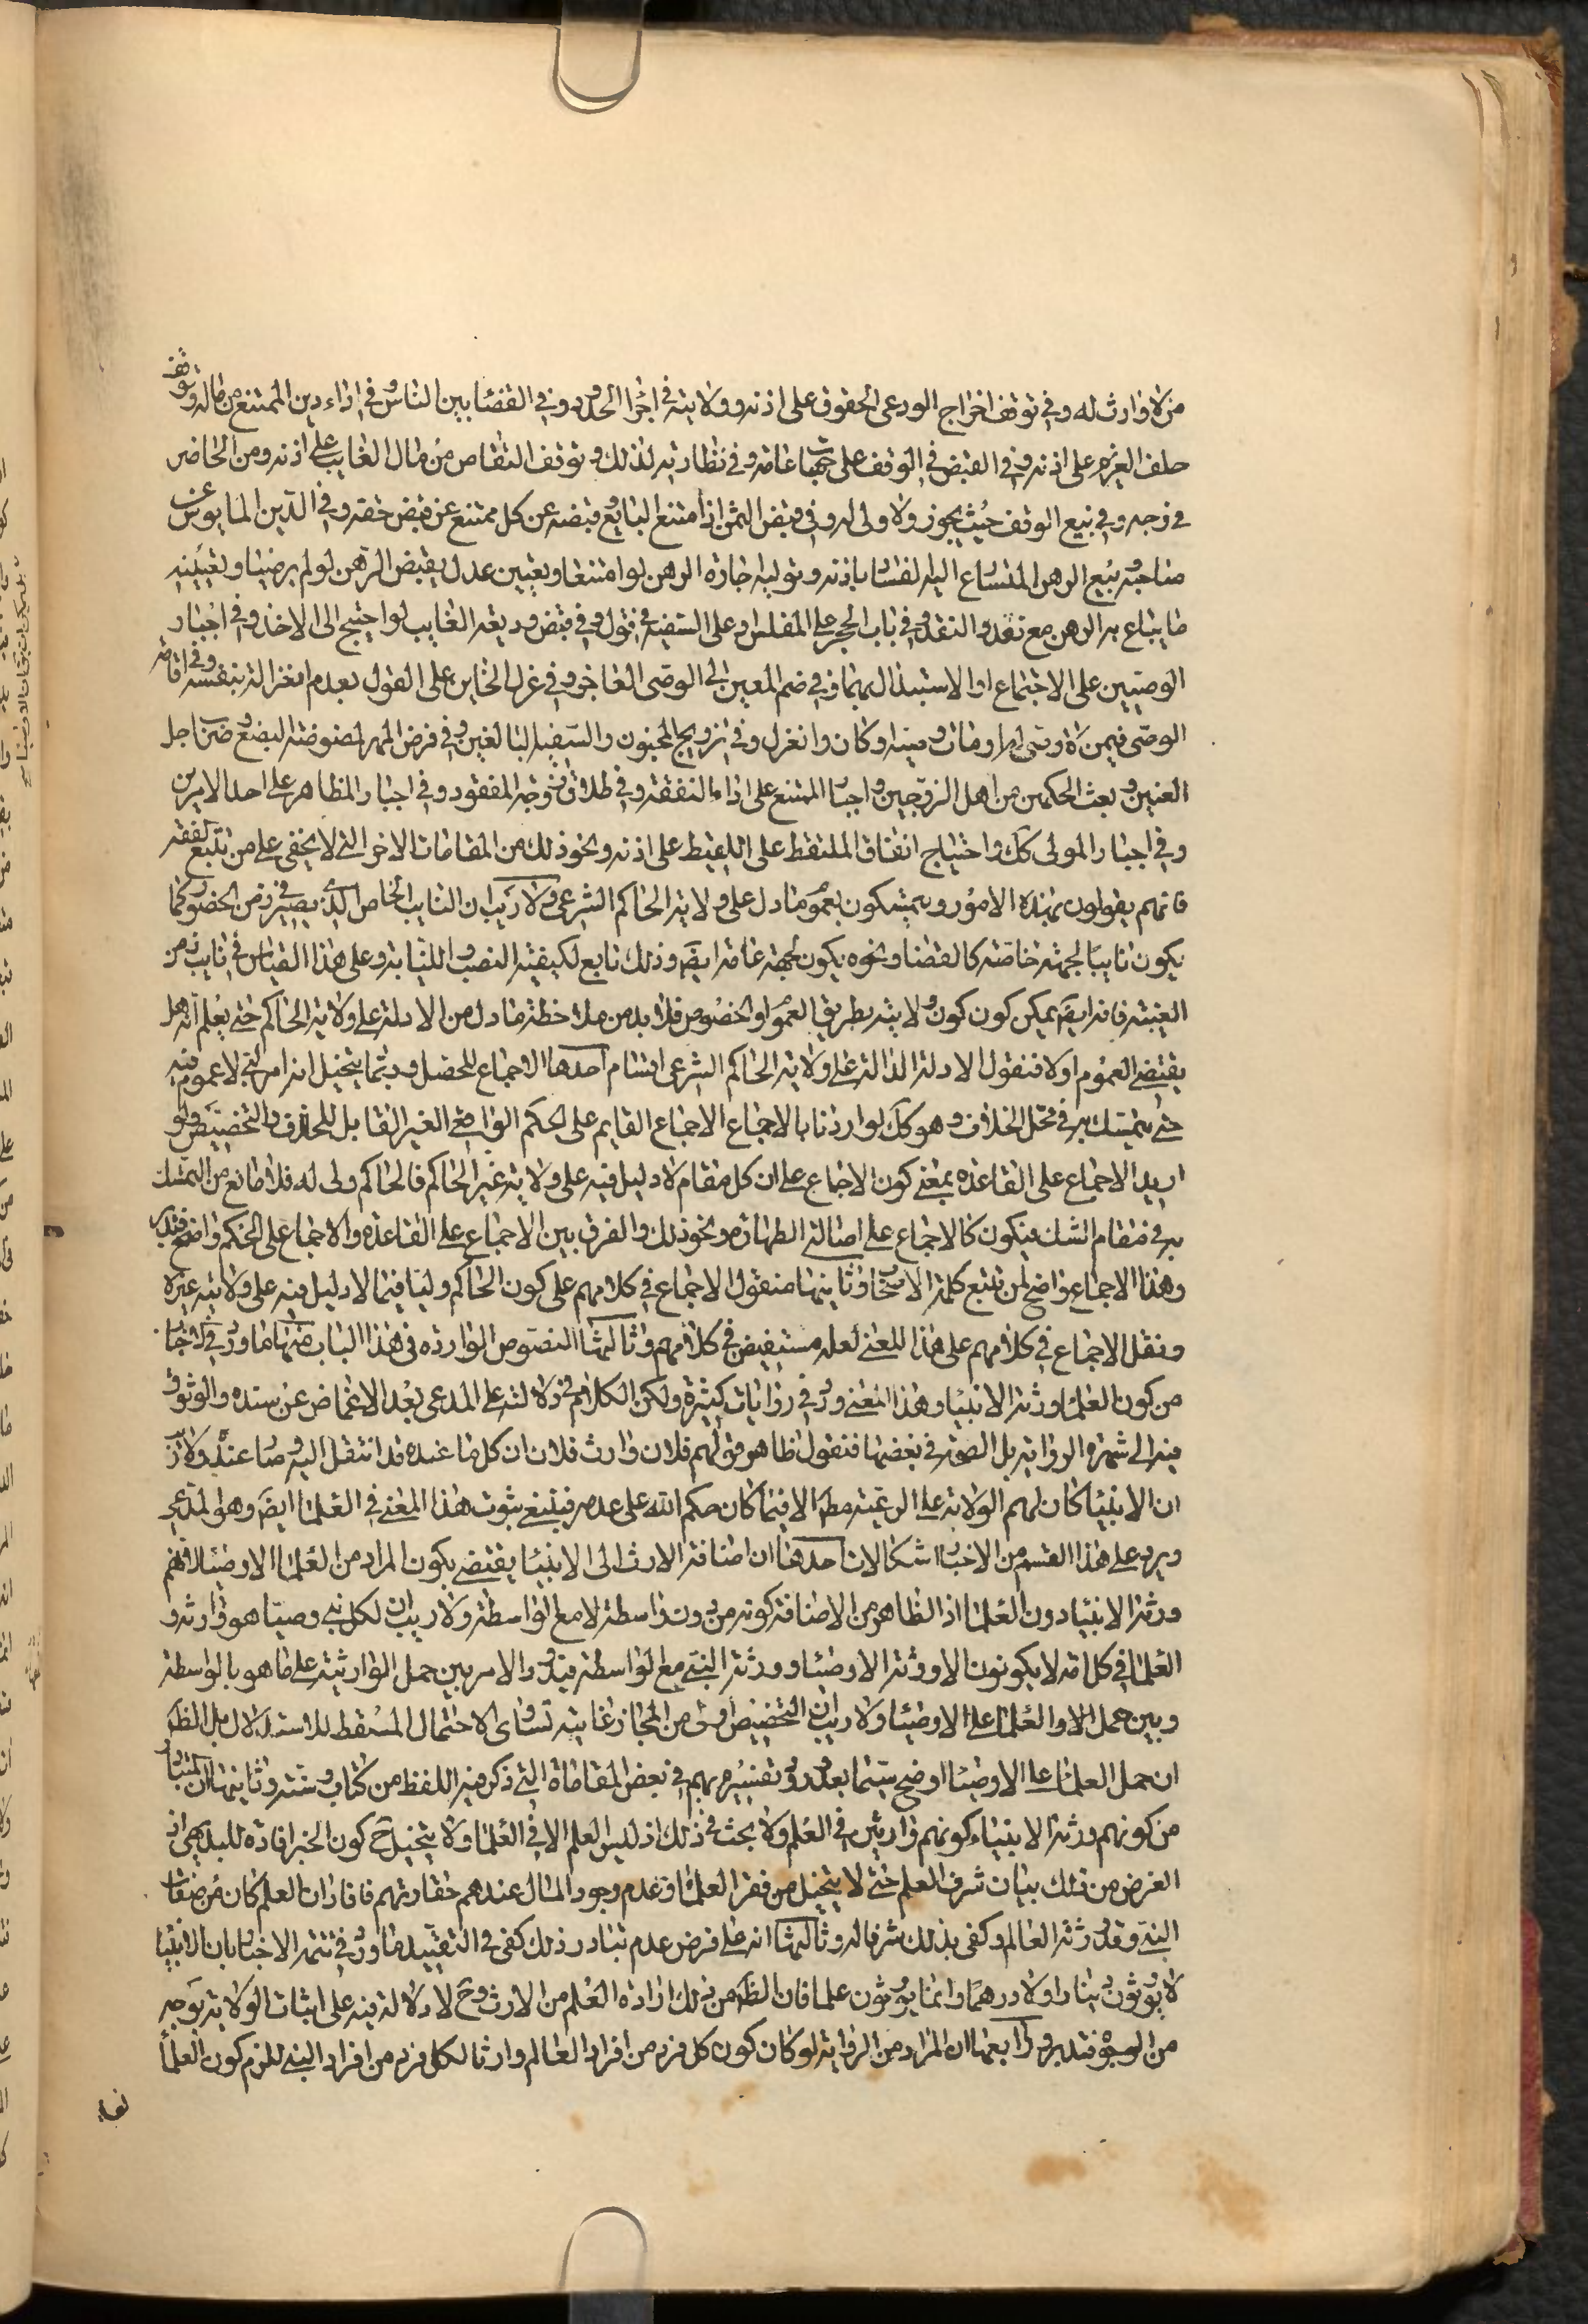 من لا وارث له وفي توقف اخراج الودعي الحقوق على اذنه وولايته في اجراء الحدود وفي القضا بين الناس وفي اداء دين الممتنع من ماله وتوقف
حلف الغريم على اذنه وفي القبض في الوقف على جهات عامه وفي نظارته لذلك وتوقف التقاص من مال الغايب على اذنه ومن الحاضر
في وجه وفي بيع الوقف حيث يجوز ولا ولى له وفي قبض الثمن اذا امتنع البايع وقبضه عن كل ممتنع عن قبض حقه وفي الدين المايوس عن
صاحبه وبيع الرهن المتسارع اليه الفساد باذنه وتوليه اجاره الرهن لو امتنعا وتعيين عدل يقبض الرهن لو لم يرضيا وتعيينه
ما يباع به الرهن مع تعدد النقد وفي باب الحجر على المفلس وعلى السفيه في قول وفي قبض وديعه الغايب لو احتيج الى الاخذ وفي اجبار
الوصيين على الاجتماع او الاستبدال بهما وفي ضم المعين الى الوصى العاجز وفي عزل الخاين على القول بعدم انعزاله بنفسه وفي اقامه
الوصى فيمن لا وصى له او مات وصيه او كان وانعزل وفي تزويج المجنون والسفيه البالغين وفي فرض المهر لمفوضه البضع وضرب اجل
العنين وبعث الحكمين من اهل الزوجين واجبار الممتنع على اداء النفقه وفي طلاق زوجه المفقود وفي اجبار المظاهر على احد الامرين
وفي اجبار المولى كك واحتياج انفاق الملتقط على اللقيط على اذنه ونحو ذلك من المقامات الاخر التي لا يخفى على من تتبع الفقه
فانهم يقولون بهذه الامور ويتمسكون بعموم ما دل على ولايه الحاكم الشرعى ولا ريب ان النايب الخاص الذي يصير في زمن الحضور كما
يكون نايبا لجهة خاصه كالقضا ونحوه يكون لجهة عامه ايضا وذلك تابع لكيفيه النصب والنيابه وعلى هذا القياس في نايب زمن
الغيبه فانه ايضا يمكن كون كون ولايته بطريق العموم او الخصوص فلا بد من ملاحظة ما دل من الادله على ولايه الحاكم حتى يعلم انه هل
يقتضى العموم او لا فنقول الادله الداله على ولايه الحاكم الشرعى اقسام احدها الاجماع المحصل وربما يتخيل انه امر لبى لا عموم فيه
حتى يتمسك به في محل الخلاف وهو كك لو اردنا بالاجماع الاجماع القايم على الحكم الواقعى الغير القابل للخلاف والتخصيص ولو
اريد الاجماع على القاعده بمعنى كون الاجماع على ان كل مقام لا دليل فيه على ولايه غير الحاكم فالحاكم ولى له فلا مانع من التمسك
به في مقام الشك فيكون كالاجماع على اصاله الطهاره ونحو ذلك والفرق بين الاجماع على القاعده والاجماع على الحكم واضح فتدبر
وهذا الاجماع واضح لمن تتبع كلمه الاصحاب وثانيها منقول الاجماع في كلامهم على كون الحاكم وليا فيما لا دليل فيه على ولايه غيره
ونقل الاجماع في كلامهم على هذا المعنى لعله مستفيض في كلامهم وثالثها النصوص الوارده في هذا الباب منها ما ورد في الاخبار
من كون العلماء ورثه الانبياء وهذا المعنى ورد في روايات كثيره ولكن الكلام في دلالته على المدعى بعد الاغماض عن سنده والوثوق
منه الى شهره الروايه بل الصحه في بعضها فنقول ظاهر قولهم فلان وارث فلان ان كل ما عنده قد انتقل اليه وصار عنده ولا ريب
ان الانبياء كان لهم الولايه على الرعيه مطلقا الا فيما كان حكم الله على عدمه فينبغى ثبوت هذا المعنى في العلماء ايضا وهو المدعى
ويرد على هذا القسم من الاخبار اشكالات احدها ان اضافه الارث الى الانبياء يقتضى بكون المراد من العلماء الاوصياء فانهم
ورثه الانبياء دون العلماء اذ الظاهر من الاضافه كونه من دون واسطه لا مع الواسطه ولا ريب ان لكل نبى وصيا هو وارثه و
العلماء في كل امه لا يكونون الا ورثه الاوصيا وورثه النبى مع الواسطه فيدور الامر بين حمل الوارثيه على ما هو بالواسطه
وبين حمل الاو العلماء على الاوصياء ولا ريب ان التخصيص اولى من المجاز غايته تساوى الاحتمال المسقط للاستدلال بل الظ
ان حمل العلماء على الاوصياء اوضح سيما بعد ورود تفسيره بهم في بعض المقامات التي ذكر فيه اللفظ من كتاب وسنه وثانيها ان المتبادر
من كونهم ورثه الانبياء كونهم وارثين في العلم ولا بحث في ذلك اذ ليس العلم الا في العلماء ولا يتخيل ح كون الخبر افاده للبديهى اذ
الغرض من ذلك بيان شرف العلم حتى لا يتخيل من فقر العلماء وعدم وجود المال عندهم حقارتهم فافاد ان العلم كان من صفات
النبى وقد ورثه العالم وكفى بذلك شرفا له وثالثها انه على فرض عدم تبادر ذلك كفى في التقييد ما ورد في تتمه الاخبار بان الانبيا
لا يورثون دينارا ولا درهما وانما يورثون علما فان الظ من ذلك اراده العلم من الارث وح لا دلاله فيه على اثبات الولايه بوجه
من الوجوه فتدبر ورابعها ان المراد من الروايه لو كان كون كل فرد من افراد العالم وارثا لكل فرد من افراد النبى للزم كون العلماء